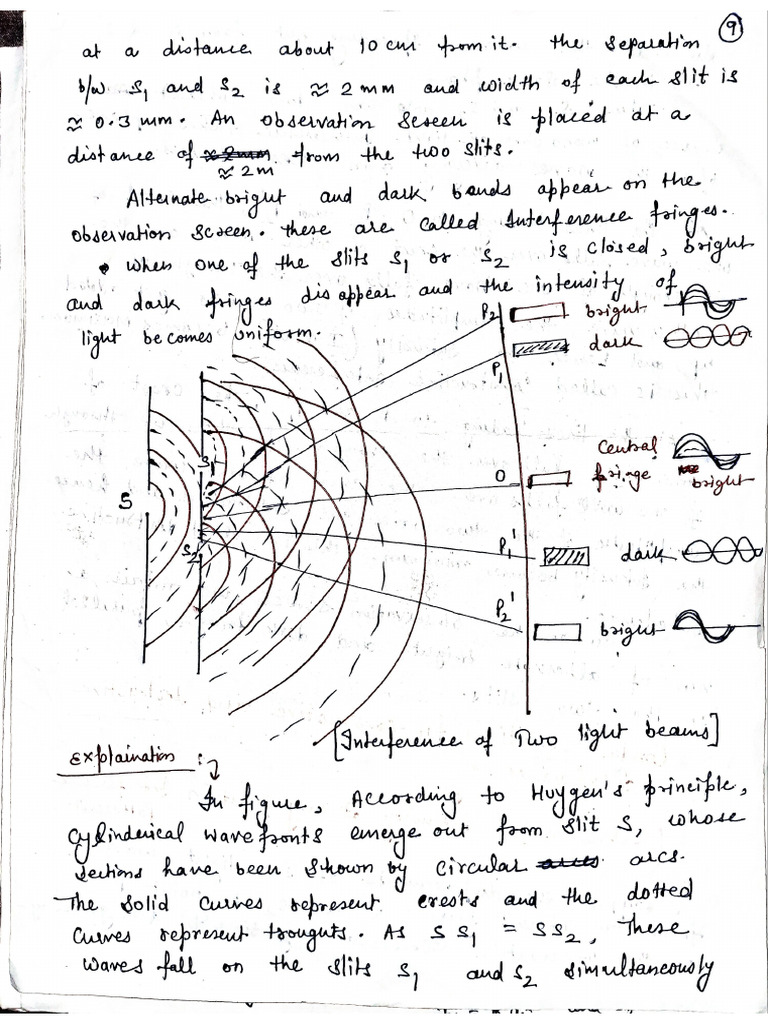 9
at a distance about 10 cm from it. the separation
b/w S1 and S2 is ≈ 2 mm and width of each slit is
≈ 0.3 mm. An observation screen is placed at a
distance of from the two slits.
≈ 2m
Alternate bright and dark bands appear on the
observation screen. these are called Interference fringes.
• when one of the slits S1 or S2 is closed, bright
and dark fringes disappear and the intensity of
light becomes uniform.
P2 bright
P1 dark
S1
Central
O fringe
bright
S
S2
P1' dark
P2' bright
[Interference of Two light beams]
Explaination :
In figure, According to Huygen's principle,
Cylinderical wavefronts emerge out from slit S, whose
sections have been shown by circular arcs.
The solid curves represent crests and the dotted
curves represent troughts. As SS1 = SS2, These
waves fall on the slits S1 and S2 simultaneously